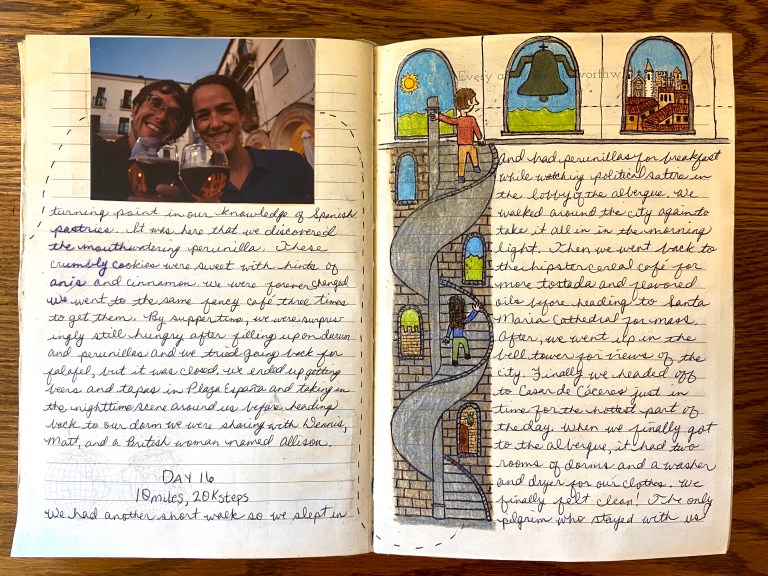 turning point in our knowledge of Spanish
pastries. It was here that we discovered
the mouthwatering perunilla. These
crumbly cookies were sweet with hints of
anis and cinnamon. We were forever changed
We went to the same fancy café three times
to get them. By suppertime, we were surpris
ingly still hungry after filling up on durum
and perunillas and we tried going back for
falafel, but it was closed. We ended up getting
beers and tapas in Plaza España and taking in
the nighttime scene around us before heading
back to our dorm we were sharing with Dennis,
Matt, and a British woman named Allison.
DAY 16
10 miles, 20K steps
We had another short walk so we slept in
Every
worthw
and had perunillas for breakfast
while watching political satire in
the lobby of the albergue. We
walked around the city again to
take it all in in the morning
light. Then we went back to
the hipster cereal café for
more tostada and flavored
oils before heading to Santa
Maria Cathedral for mass.
After, we went up in the
bell tower for views of the
city. Finally we headed off
to Casar de Cáceres just in
time for the hottest part of
the day. When we finally got
to the albergue, it had two
rooms of dorms and a washer
and dryer for our clothes. We
finally felt clean! The only
pilgrim who stayed with us